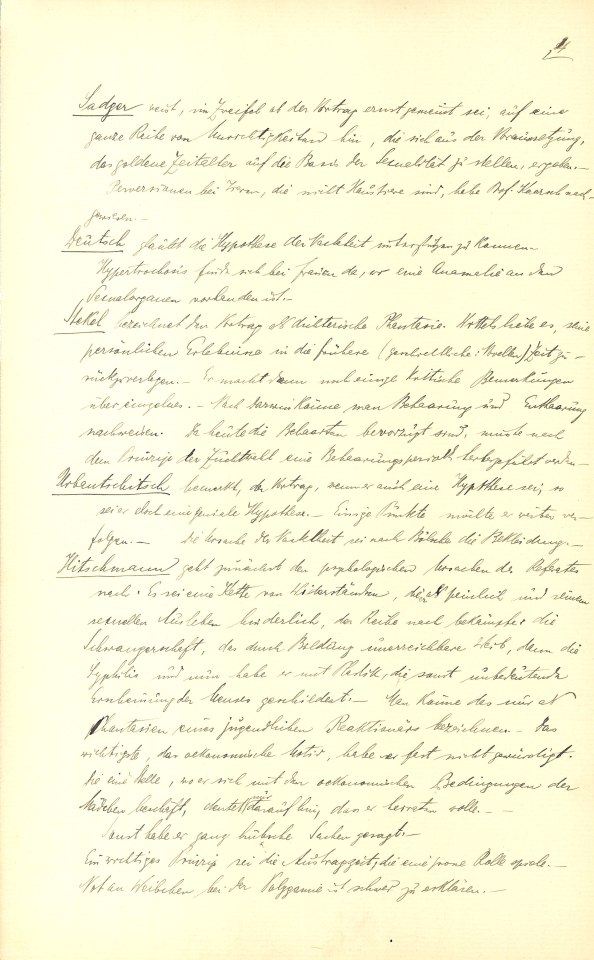 4
Sadger weist, im Zweifel ob der Vortrag ernst gemeint sei, auf eine
ganze Reihe von Unrichtigkeiten hin, die sich aus der Voraussetzung,
das goldene Zeitalter auf die Basis der Sexualität zu stellen, ergeben.—
Perversionen bei Tieren, die nicht Haustiere sind, habe Prof. Karsch nach-
gewiesen.—
Deutsch glaubt die Hypothese der Nacktheit unterstützen zu können
Hypertrichosis finde sich bei Frauen da, wo eine Anomalie an den
Sexualorganen vorhanden ist.—
Stekel bezeichnet den Vortrag als dichterische Phantasie. Wittels liebe es, seine
persönlichen Erlebnisse in die frühere (geschichtliche) Zeit zu-
rückzuverlegen.— Er macht dann noch einige kritische Bemerkungen
über einzelnes.— Nach Darwin könne man Behaarung und Enthaarung
nachweisen. Da heute die Behaarten bevorzugt sind, müsste nach
dem Prinzipe der Zuchtwahl eine Behaarungsperiode herbeigeführt werden—
Urbantschitsch bemerkt, der Vortrag, wenn er auch eine Hypothese sei, so
sei er doch eine geniale Hypothese.— Einige Punkte möchte er weiter ver-
folgen.— Die Ursache der Nacktheit sei nach Bölsche die Bekleidung.—
Hitschmann geht zunächst den psychologischen Ursachen des Referates
nach. Es sei eine Kette von Widerständen, die, als peinlich und seinem
sexuellen Ausleben hinderlich, der Reihe nach bekämpfe: die
Schwangerschaft, das durch Bildung unerreichbare Weib, dann die
Syphilis und nun habe er mit Plastik, die sonst unbedeutende
Erscheinung der Menses geschildert.— Man könne das nur als
Phantasien eines jugendlichen Reaktionärs bezeichnen— Das
wichtigste, das oekonomische Motiv, habe er fast nicht gewürdigt.
Die eine Stelle, wo er sich mit den oekonomischen Bedingungen der
Mädchen beschäft, deute nur darauf hin, dass er heiraten wolle.—
Sonst habe er ganz hübsche Sachen gesagt.—
Ein wichtiges Prinzip sei die Austragzeit; die eine grosse Rolle spiele.—
Not an Weibchen bei der Polygamie ist schwer zu erklären.—